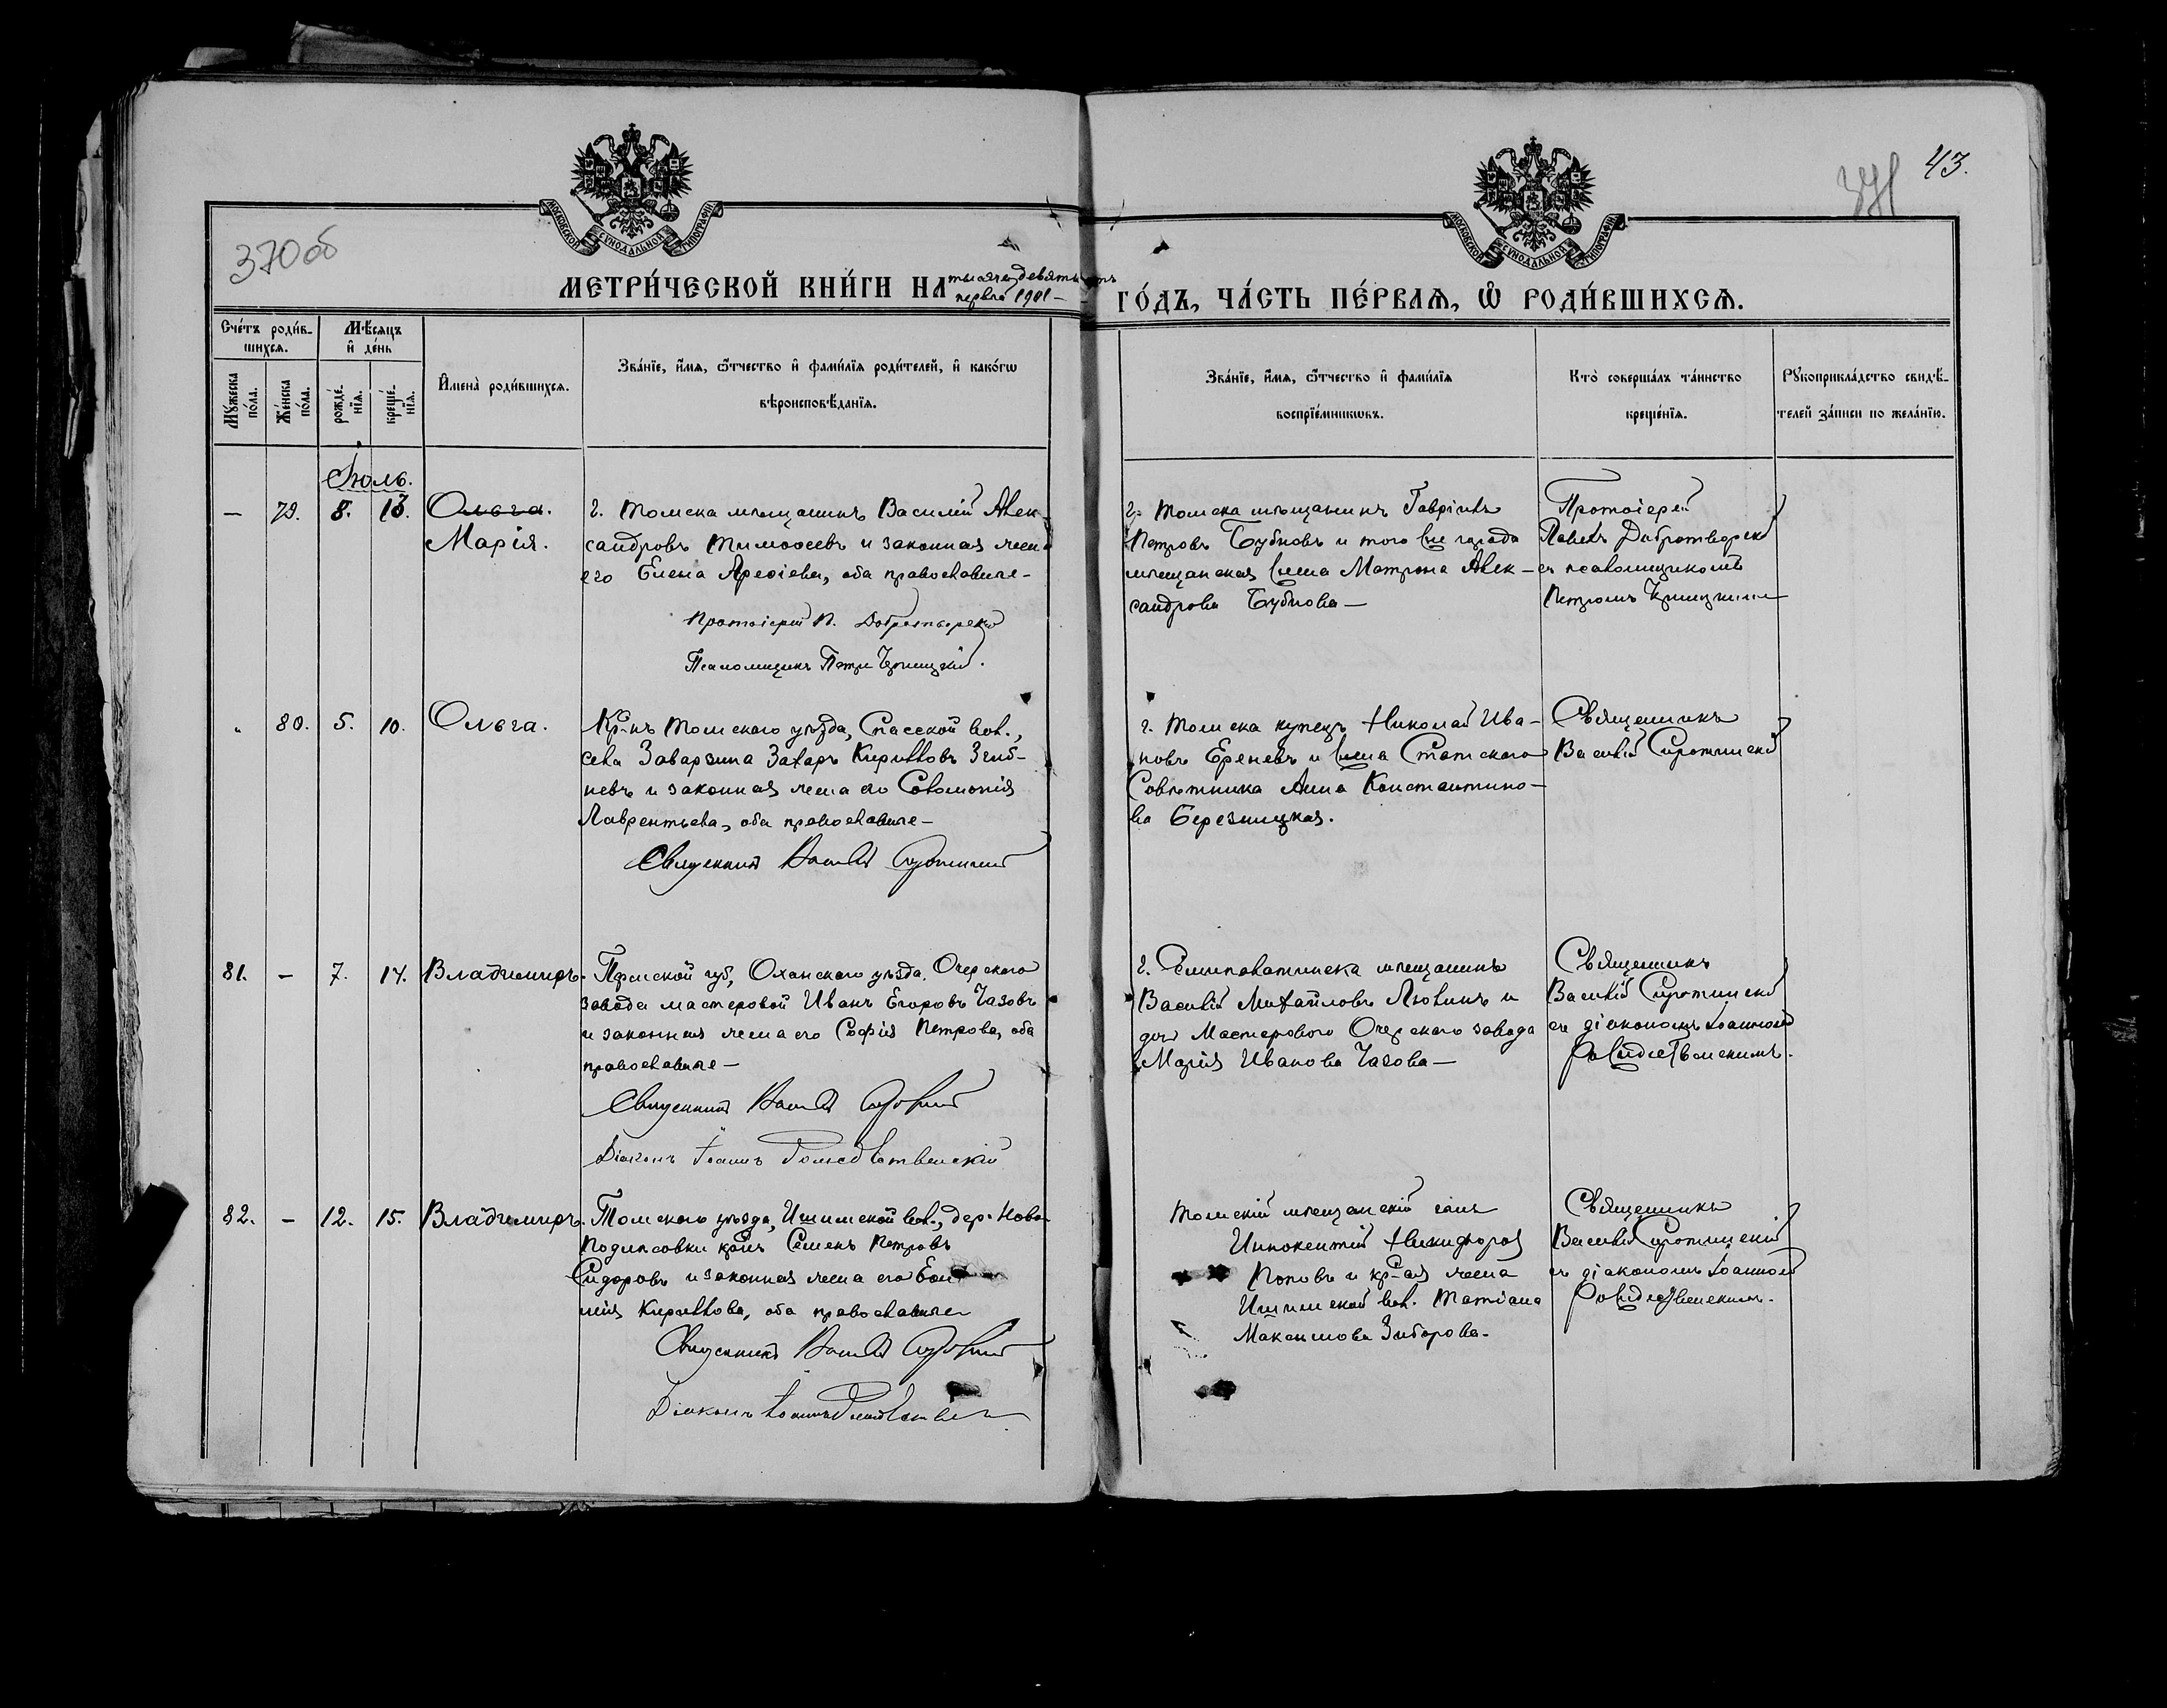 43.
371
370об
МОСКОВСКОЙ СѴНОДАЛЬНОЙ ТИПОГРАФІИ
МОСКОВСКОЙ СѴНОДАЛЬНОЙ ТИПОГРАФІИ
МЕТРИ́ЧЕСКОЙ КНИ́ГИ НА тысяча девятьсотъ
первый 1901 –
ГО́ДЪ, ЧА́СТЬ ПЕ́РВАѦ, Ѡ РОДИ́ВШИХСѦ.
Сче́тъ роди́в-
шихсѧ.
Мѣ́сѧцъ
и де́нь
Мꙋ́жеска по́ла.
Же́нска по́ла.
рожде́-нїѧ.
креще́-нїѧ.
Имена̀ роди́вшихсѧ.
Зва́нїе, и́мѧ, ѻ́тчество и фами́лїѧ роди́телей, и како́гѡ
вѣроисповѣ́данїѧ.
Зва́нїе, и́мѧ, ѻ́тчество и фами́лїѧ
воспрїе́мникѡвъ.
Кто̀ соверша́лъ та́инство
креще́нїѧ.
Рꙋкоприкла́дство свидѣ́-
телей за́писи по жела́нїю.
Іюль.
– 79. 8. 13. Ольга.
Марія.
г. Томска мѣщанинъ Василій Алек-
сандровъ Тимоѳеевъ и законная жена
его Елена Арефіева, оба православные –
Протоіерей П. Добротворскій
Псаломщикъ Петръ
г. Томска мѣщанинъ Гавріилъ
Петровъ Бубновъ и того же города
мѣщанская жена Матрона Алек-
сандрова Бубнова –
Протоіерей
Павелъ Добротворскій
съ псаломщикомъ
Петромъ
„ 80. 5. 10. Ольга.
Кр-нъ Томскаго уѣзда, Спасской вол.,
села Заварзина Захаръ Кирилловъ
и законная жена его Соломонія
Лаврентьева, оба православные –
Священникъ Василій Сиротинскій
г. Томска купецъ Николай Ива-
новъ Ереневъ и жена Статскаго
Совѣтника Анна Константино-
ва Березницкая.
Священникъ
Василій Сиротинскій
81. – 7. 14. Владимиръ.
Пермской губ, Оханскаго уѣзда, Очерскаго
завода мастеровой Иванъ Егоровъ Чазовъ
и законная жена его Софія Петрова, оба
православные –
Священникъ Василій Сиротинскій
Діаконъ Іоаннъ Рождественскій
г. Семипалатинска мѣщанинъ
Василій Михайловъ Лялинъ и
дочь Мастероваго Очерскаго завода
Марія Иванова Чазова –
Священникъ
Василій Сиротинскій
съ діакономъ Іоанномъ
Рождественскимъ.
82. – 12. 15. Владимиръ.
Томскаго уѣзда, Ишимской вол., дер. Ново-
Подиповки кр-нъ Семенъ Петровъ
Сидоровъ и законная жена его
Кириллова, оба православные
Священникъ Василій Сиротинскій
Діаконъ Іоаннъ Рождественскій
Томскій мѣщанскій сынъ
Иннокентій Никифоровъ
Поповъ и кр-ая жена
Ишимской вол. Татіана
Максимова Зиборова.
Священникъ
Василій Сиротинскій
съ діакономъ Іоанномъ
Рождественскимъ.